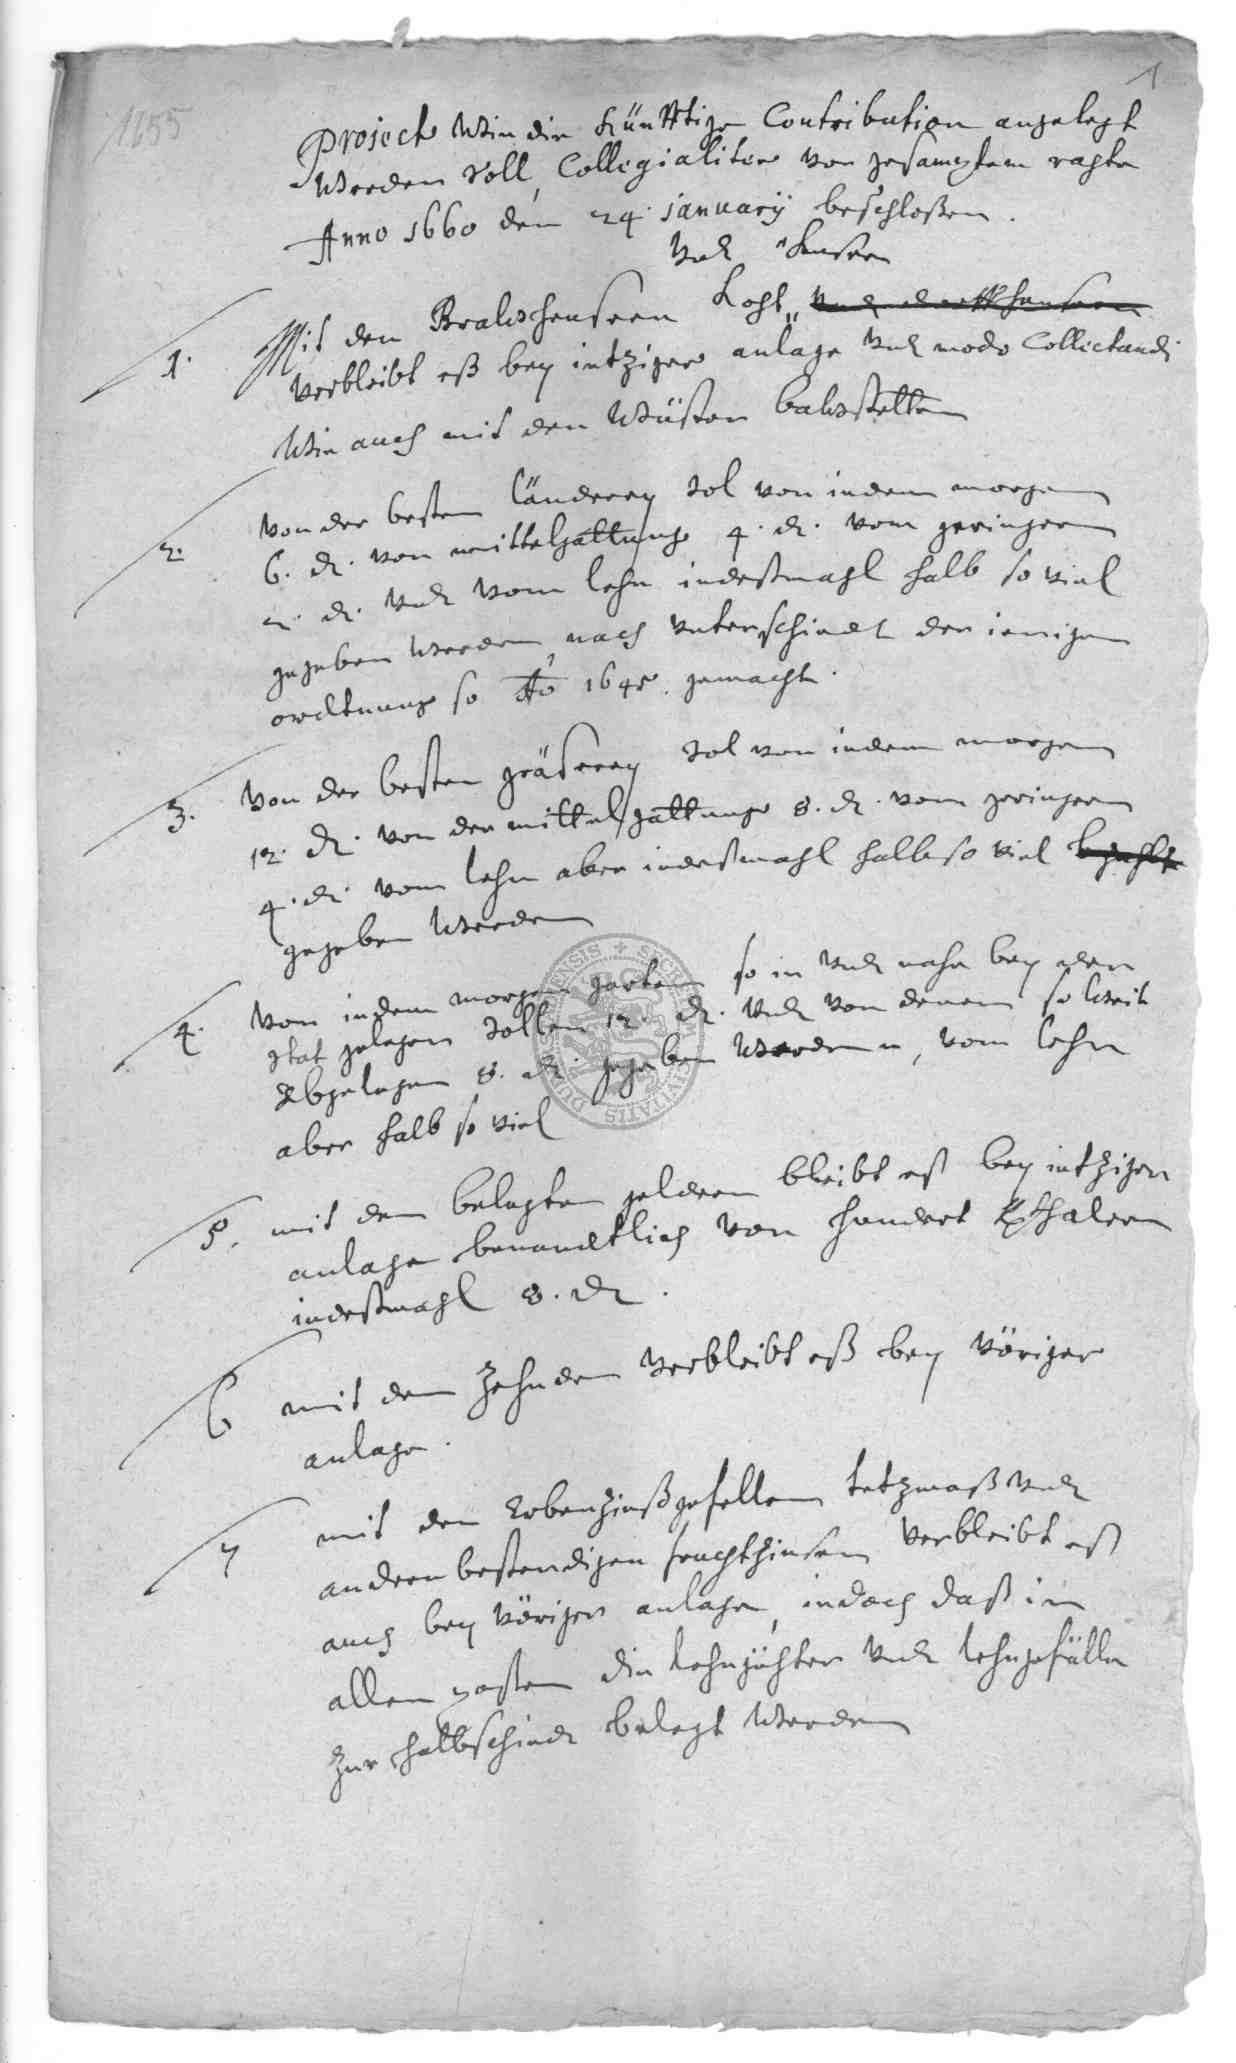 1
1655
Project Wie die Künfftige Contribution angelegt
Werden soll, Collegialiter von gesamptem rahte
Anno 1660 den 24. january beschloßen.
Vnd heusern
1. Mit den Brawheusern Koht,, Vnd
verbleibt eß bey ietziger anlage Vnd modo Collectandi
Wie auch mit den Wüsten bawstetten
2. Von der besten länderey sol von iedem morgen
6. d. von mittelgattung 4. d. vom geringern
2. d. Vnd vom lehn iedeßmahl halb so viel
gegeben werden, nach vnterschiedt der ienigen
ordtnung so Ao 1645. gemacht.
3. Von der besten gräserey sol von iedem morgen
12. d. von der mittelgattung 8. d. vom geringern
4. d. vom lehn aber iedeßmahl halb so viel bezahlt
gegeben werden
4. Von iedem morgen garten so in Vnd nahe bey der
stat gelegen sollen 12 d. Vnd von denen so weit
abgelegen 8. d. gegeben werden, vom lehn
aber halb so viel
5. mit den belegten geldern bleibt eß bey ietziger
anlage benandtlich von hundert thalern
iedeßmahl 8. d.
6 mit dem Zehnden verbleibt eß bey Voriger
anlage.
7 mit den Erbenzinßgefellen Vnd
andern bestendigen fruchtzinsen verbleibt eß
auch bey voriger anlage, iedoch daß in
allen posten die lehngühter Vnd lehngefälle
zur halbschiedt belegt werden